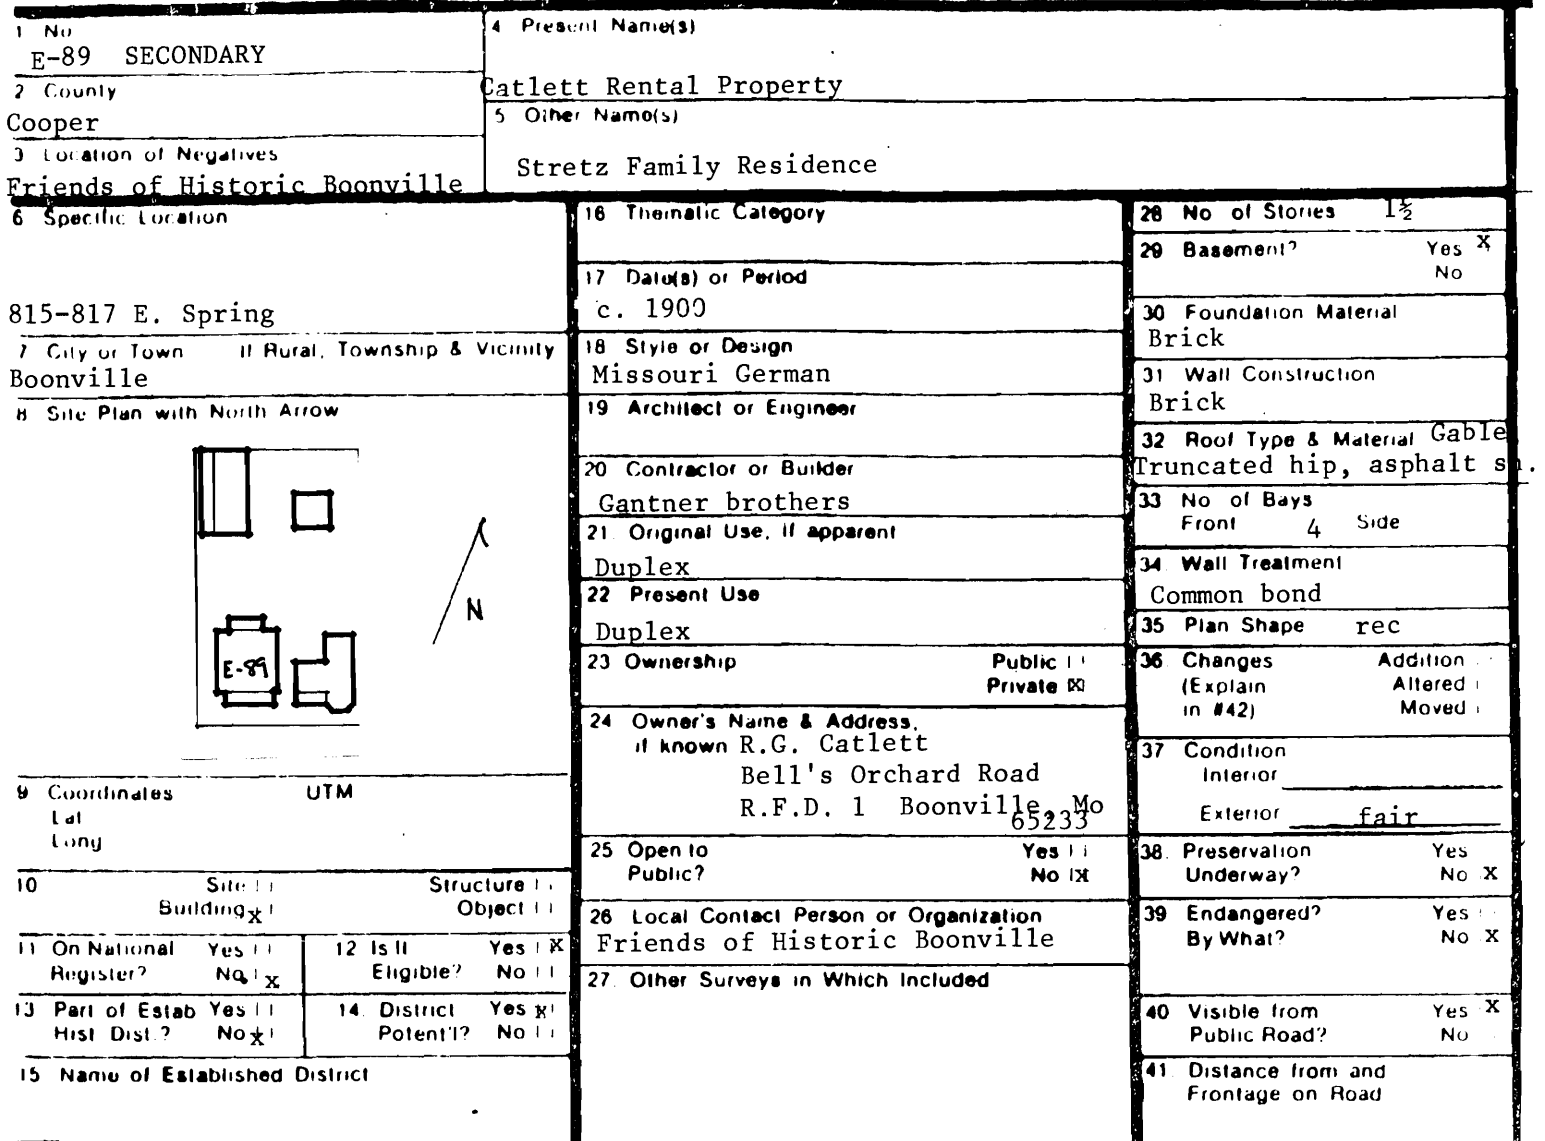 1 No
E-89 SECONDARY
2 County
Cooper
3 Location of Negatives
Friends of Historic Boonville
4 Present Name(s)
Catlett Rental Property
5 Other Name(s)
Stretz Family Residence
6 Specific Location
815-817 E. Spring
7 City or Town If Rural, Township & Vicinity
Boonville
8 Site Plan with North Arrow
N
E-89
9 Coordinates UTM
Lat
Long
10 Site Structure
Building X Object
11 On National Yes
Register? No X
12 Is It Yes X
Eligible? No
13 Part of Estab Yes
Hist Dist.? No X
14. District Yes X
Potent'l? No
15 Name of Established District
16 Thematic Category
17 Date(s) or Period
c. 1900
18 Style or Design
Missouri German
19 Architect or Engineer
20 Contractor or Builder
Gantner brothers
21. Original Use, if apparent
Duplex
22 Present Use
Duplex
23 Ownership Public
Private X
24 Owner's Name & Address,
if known R.G. Catlett
Bell's Orchard Road
R.F.D. 1 Boonville, Mo
65233
25 Open to Yes
Public? No X
26 Local Contact Person or Organization
Friends of Historic Boonville
27. Other Surveys in Which Included
28 No of Stories 1½
29 Basement? Yes X
No
30 Foundation Material
Brick
31 Wall Construction
Brick
32 Roof Type & Material Gable
Truncated hip, asphalt sh.
33 No of Bays
Front 4 Side
34 Wall Treatment
Common bond
35 Plan Shape rec
36 Changes Addition
(Explain Altered
in #42) Moved
37 Condition
Interior
Exterior fair
38. Preservation Yes
Underway? No X
39 Endangered? Yes
By What? No X
40 Visible from Yes X
Public Road? No
41. Distance from and
Frontage on Road